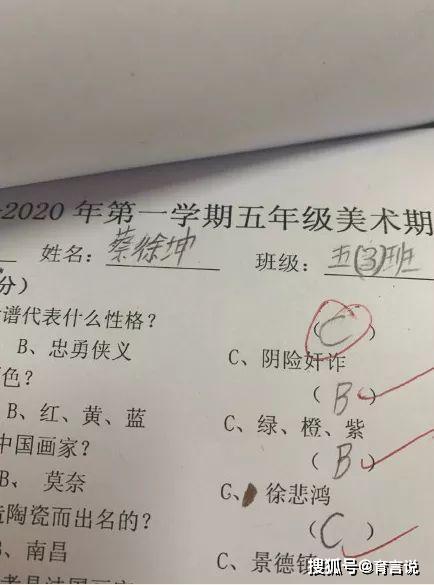 -2020 年第一学期五年级美术期
姓名: 蔡徐坤 班级: 五(3)班
分)
谱代表什么性格? (C)
B、忠勇侠义 C、阴险奸诈
色? (B)
B、红、黄、蓝 C、绿、橙、紫
中国画家? (B)
B、 莫奈 C、徐悲鸿
陶瓷而出名的? (C)
B、南昌 C、景德镇
搜狐号@育言说